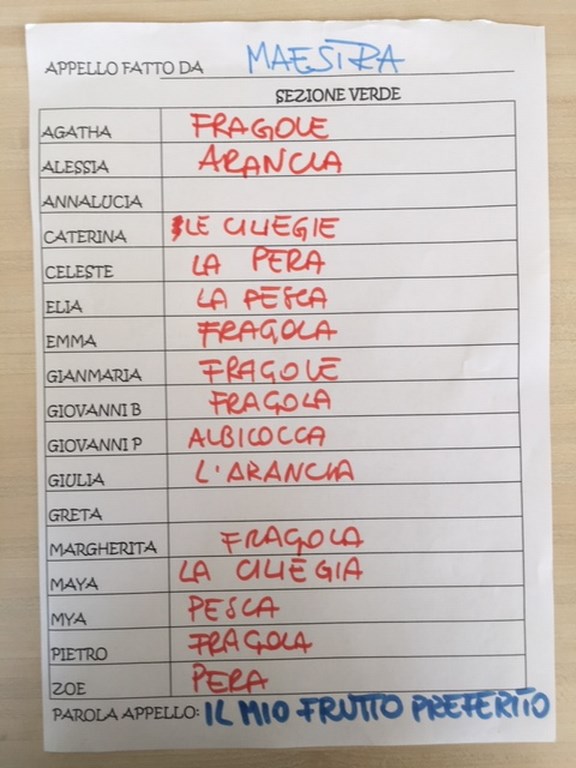 APPELLO FATTO DA MAESTRA
SEZIONE VERDE
AGATHA FRAGOLE
ALESSIA ARANCIA
ANNALUCIA
CATERINA LE CILIEGIE
CELESTE LA PERA
ELIA LA PESCA
EMMA FRAGOLA
GIANMARIA FRAGOLE
GIOVANNI B FRAGOLA
GIOVANNI P ALBICOCCA
GIULIA L'ARANCIA
GRETA
MARGHERITA FRAGOLA
MAYA LA CILIEGIA
MYA PESCA
PIETRO FRAGOLA
ZOE PERA
PAROLA APPELLO: IL MIO FRUTTO PREFERITO